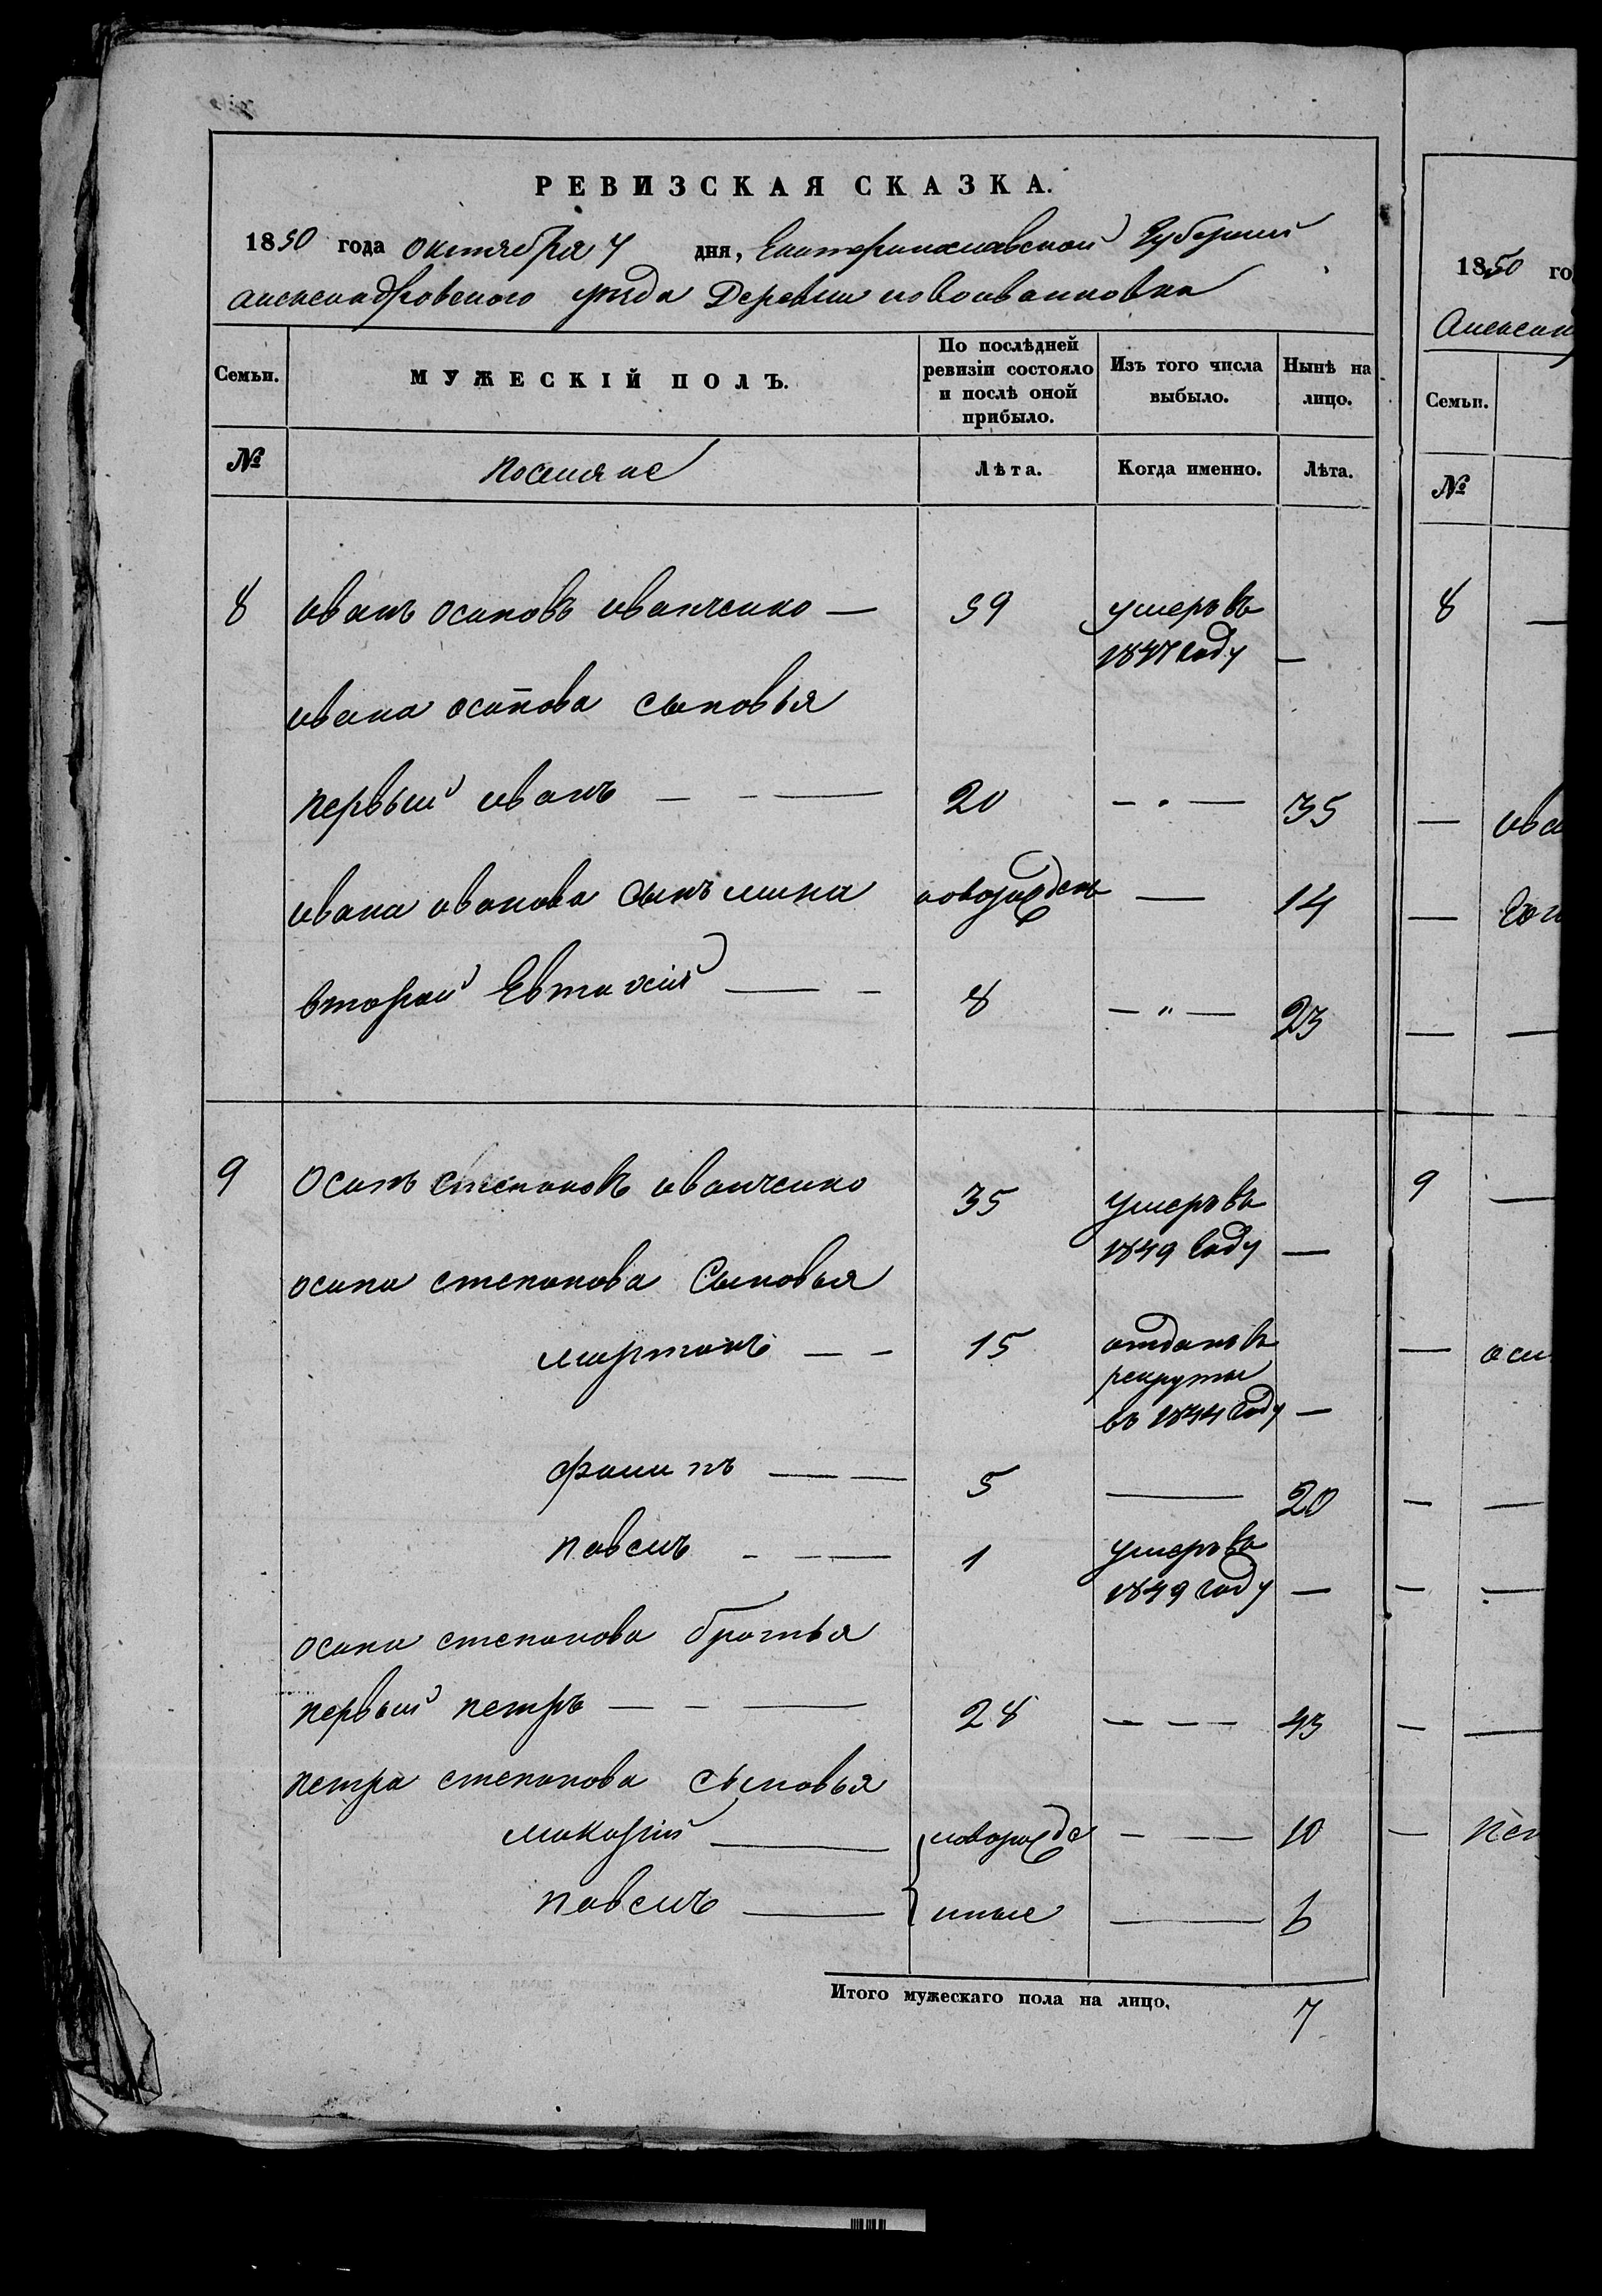 РЕВИЗСКАЯ СКАЗКА.
1850 года октября 4 дня, Екатеринославской Губернии
александровского уезда Деревни новоивановка
Семьи. МУЖЕСКІЙ ПОЛЪ. По послѣдней ревизіи состояло и послѣ оной прибыло. Изъ того числа выбыло. Нынѣ на лицо.
№ поселяне Лѣта. Когда именно. Лѣта.
8 иванъ осиповъ иванченко — 39 умеръ въ
1847 году —
ивана осипова сыновья
первый иванъ — - — 20 — . — 35
ивана иванова сынъ мина новорожденъ — 14
второй Евтихій — - 8 — " — 23
9 Осипъ степановъ иванченко 35 умеръ въ
1849 году —
осипа степанова Сыновья
мартынъ — — 15 отданъ въ
рекруты
въ 1844 году —
филипъ — — 5 — 20
павелъ - — 1 умеръ въ
1849 году —
осипа степанова братья
первый петръ — - — 28 — — — 43
петра степанова сыновья
макарій — новорожде — — 10
павелъ — нные — 6
Итого мужескаго пола на лицо. 7
1850 го
Алексан
Семьи.
№
8 —
— ива
—
— —
9 —
— оси
— —
— —
— —
— пет